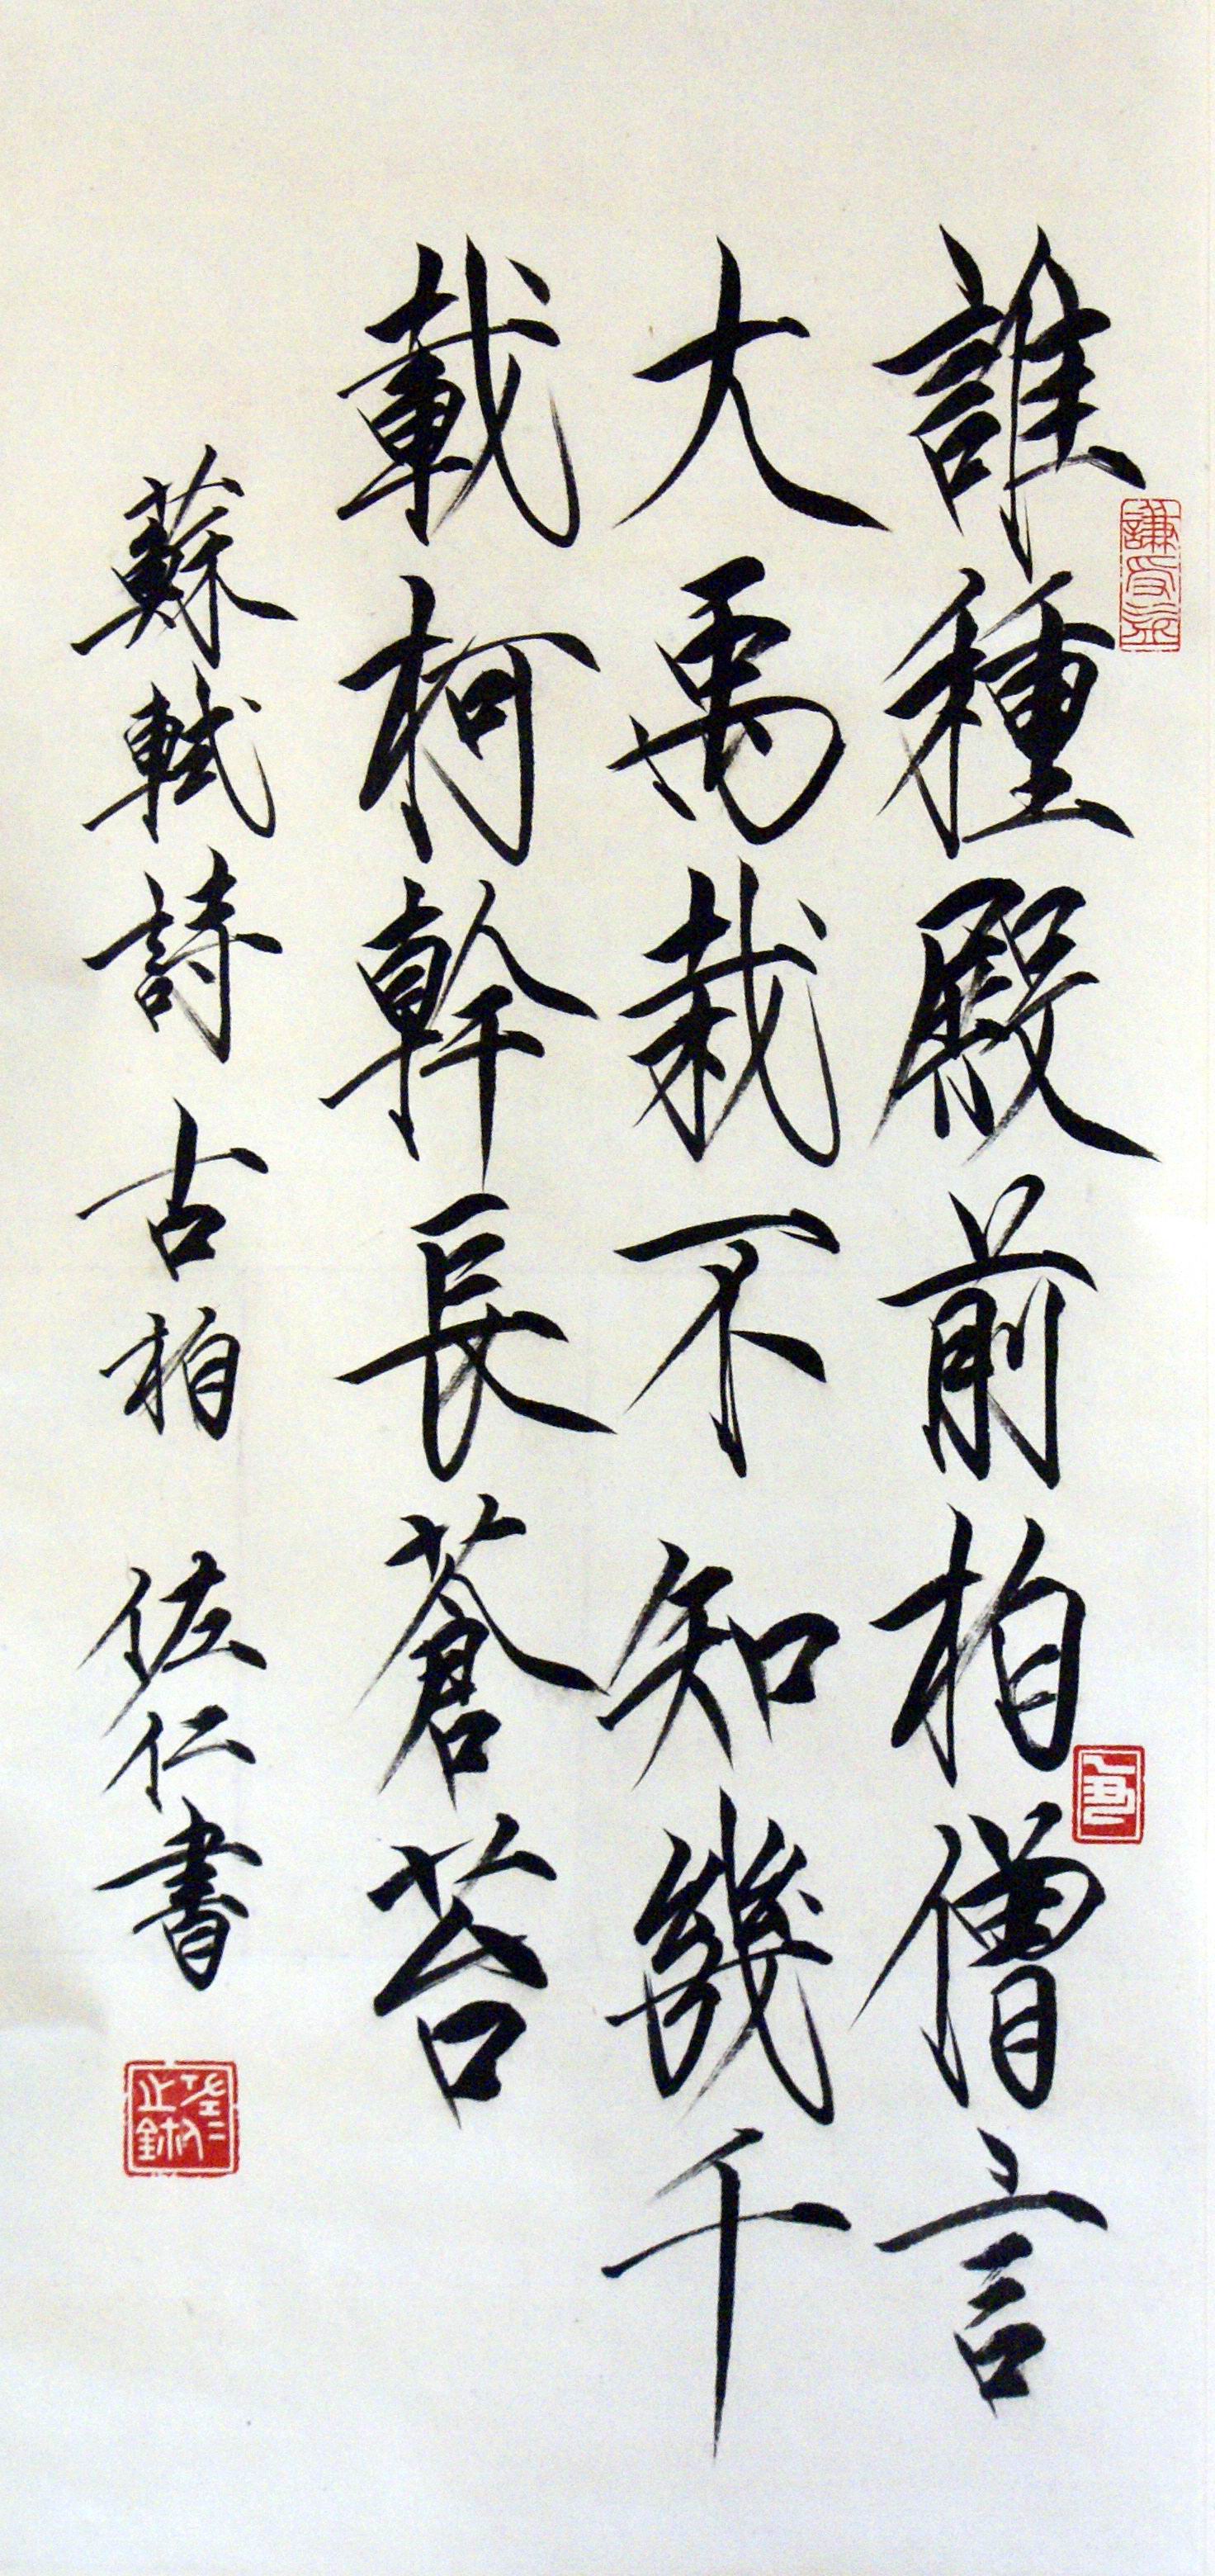 誰種殿前柏僧言
大禹栽不知幾千
載柯幹長蒼苔
蘇軾詩古柏佐仁書
謙受益